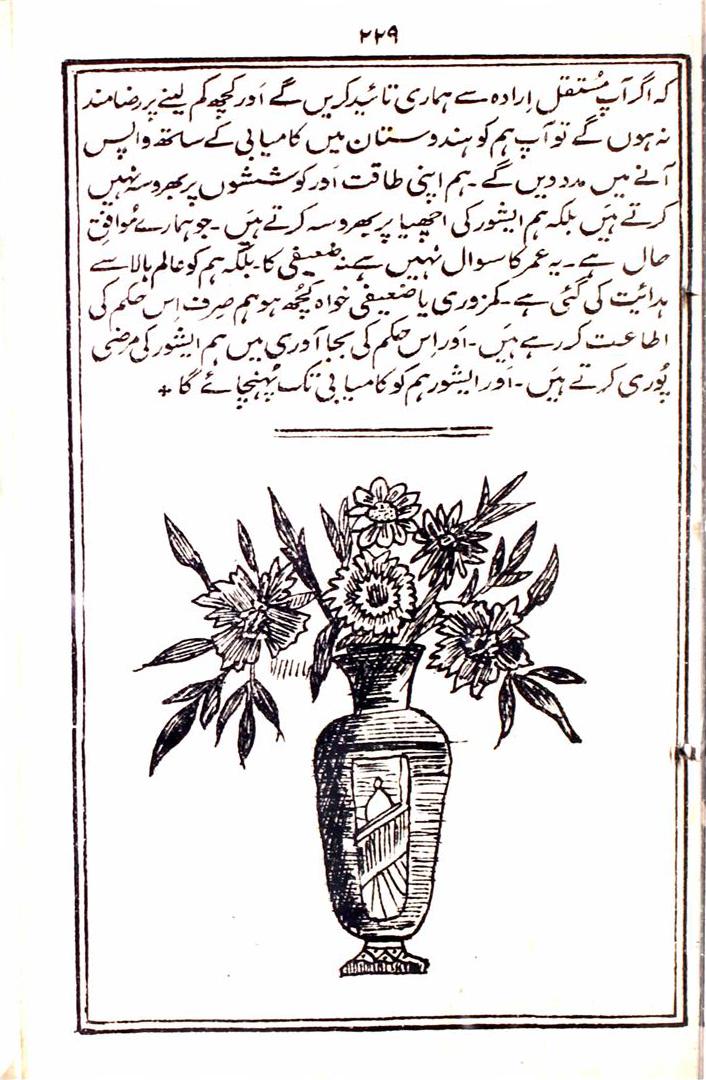 ۲۲۹
کہ اگر آپ مُستقل اِرادہ سے ہماری تائید کریں گے اَور کچھ کم لینے پر رضامند
نہ ہوں گے تو آپ ہم کو ہندوستان میں کامیابی کے ساتھ واپس
آنے میں مدد دیں گے۔ ہم اپنی طاقت اَور کوششوں پر بھروسہ نہیں
کرتے ہیَں بلکہ ہم ایشور کی اچھیا پر بھروسہ کرتے ہیَں۔ جو ہمارے مُوافقِ
حال ہے۔ یہ عمر کا سوال نہیں ہے نہ ضعیفی کا۔ بلکہ ہم کو عالم بالا سے
ہدائیت کی گئی ہے۔ کمزوری یا ضعیفی خواہ کچُھ ہو ہم صرف اِس حکم کی
اطاعت کر رہے ہیَں۔ اَور اِس حکم کی بجا آوری میں ہم ایشور کی مرضی
پُوری کرتے ہیَں۔ اَور ایشور ہم کو کامیابی تک پُہنچائے گا +